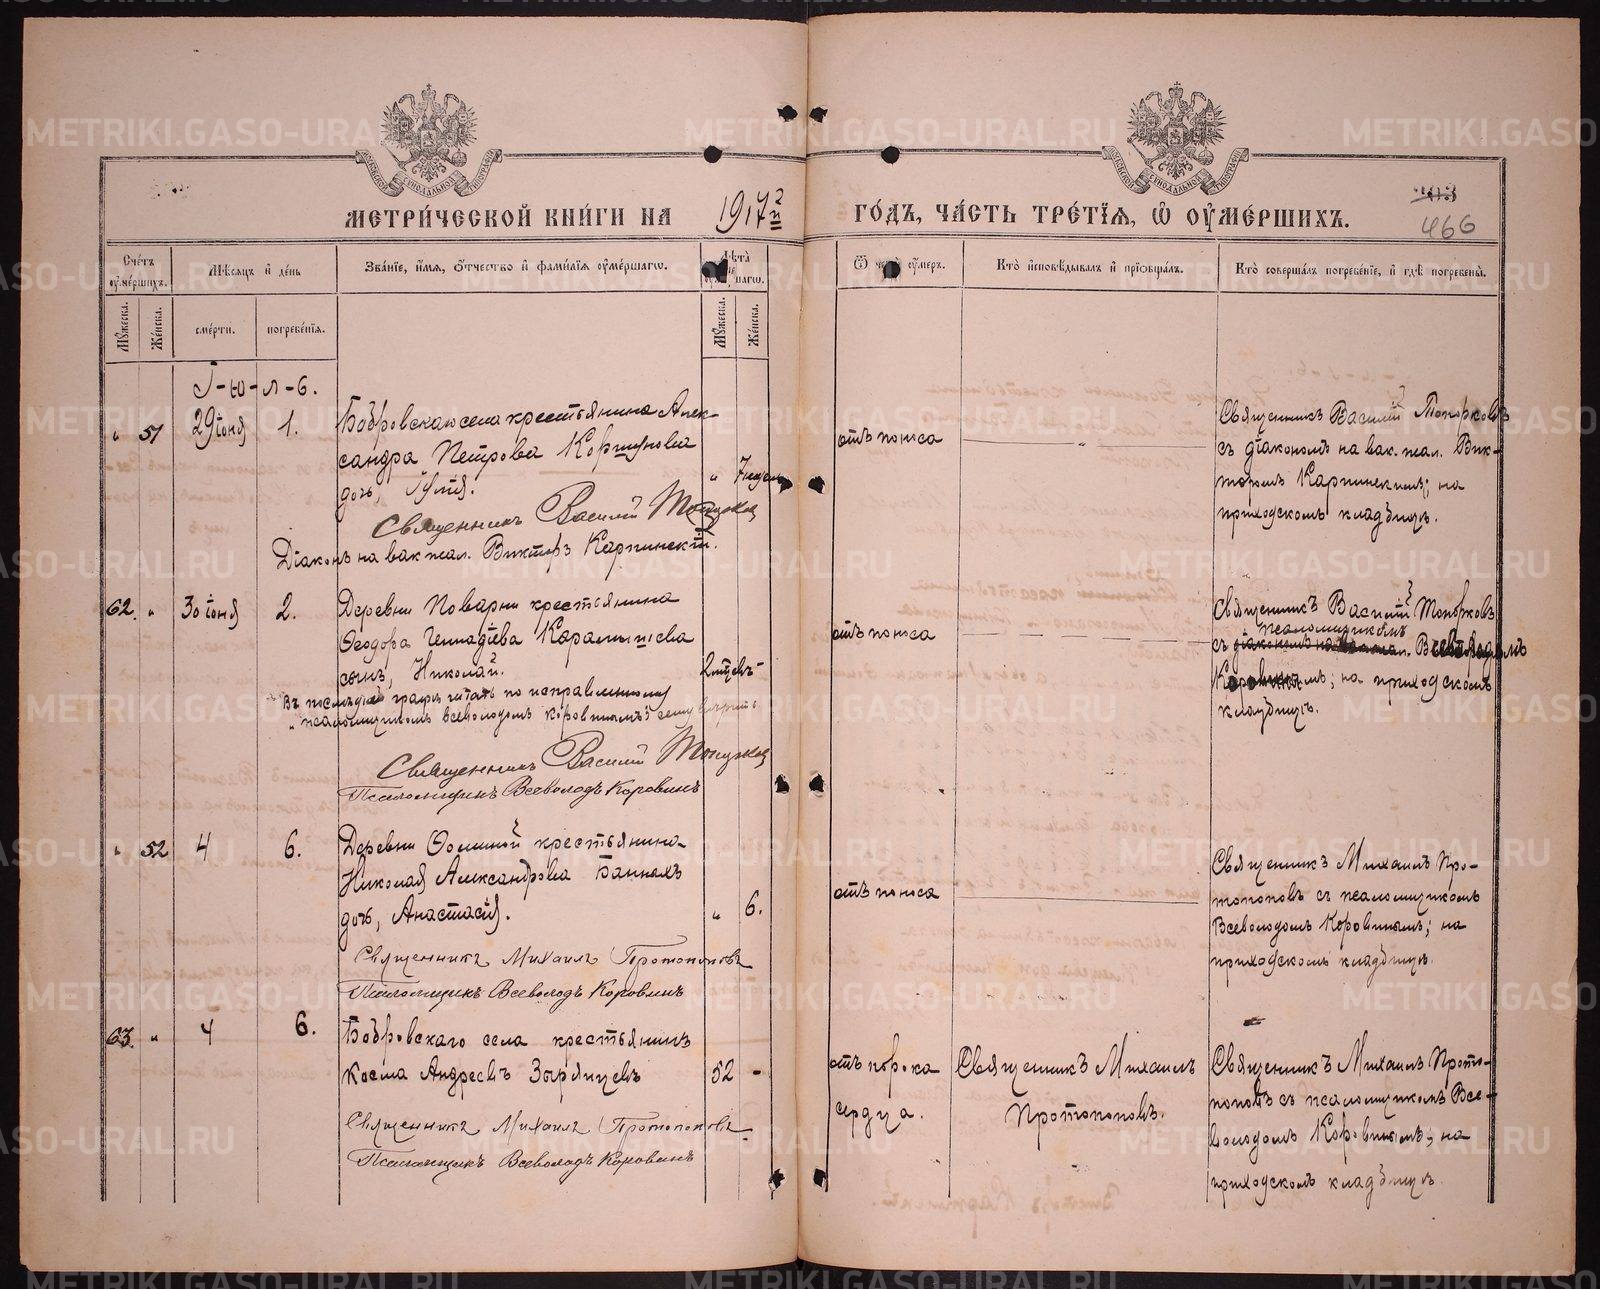 МЕТРИ́ЧЕСКОЙ КНИ́ГИ НА 1917й ГО́ДЪ, ЧА́СТЬ ТРЕ́ТЇѦ, Ѡ҆ ОУ҆МЕ́РШИХЪ.
466
Сче́тъ оу҆ме́ршихъ.
Мѣ́сѧцъ и҆ де́нь
Зва́нїе, и҆́мѧ, ѻ҆́тчество и҆ фами́лїѧ оу҆ме́ршагѡ.
Ѿ чегѡ̀ оу҆́меръ.
Кто̀ и҆сповѣ́дывалъ и҆ прїѡбща́лъ.
Кто̀ соверша́лъ погребе́нїе, и҆ гдѣ̀ погребены̀.
Мꙋ́жеска.
Же́нска.
сме́рти.
погребе́нїѧ.
Мꙋ́жеска.
Же́нска.
І-ю-л-ь.
„ 51 29 іюня 1.
Бобровскаго села крестьянина Алек-
сандра Петрова Коршунова
дочь, Іулія.
„ 7 недѣль
Священникъ Василій Топорковъ
Діаконъ на вак. псал. Викторъ Карпинскій.
отъ поноса
„
Священникъ Василій Топорковъ
съ діакономъ на вак. псал. Вик-
торомъ Карпинскимъ; на
приходскомъ кладбищѣ.
62. „ 30 іюня 2.
Деревни Поварни крестьянина
Ѳеодора Геннадіева Карамышева
сынъ, Николай.
2 мѣсяц. -
Въ послѣдней графѣ читать по исправленному
„псаломщикомъ Всеволодомъ Коровинымъ" сему вѣрить.
Священникъ Василій Топорковъ
Псаломщикъ Всеволодъ Коровинъ
отъ поноса
Священникъ Василій Топорковъ
псаломщикомъ
съ діакономъ на вак. псал. Всеволодомъ
Коровинымъ; на приходскомъ
кладбищѣ.
„ 52 4 6.
Деревни Ѳоминой крестьянина
Николая Александрова Банныхъ
дочь, Анастасія.
„ 6.
Священникъ Михаилъ Протопоповъ
Псаломщикъ Всеволодъ Коровинъ
отъ поноса
Священникъ Михаилъ Про-
топоповъ съ псаломщикомъ
Всеволодомъ Коровинымъ; на
приходскомъ кладбищѣ.
63. „ 4 6.
Бобровскаго села крестьянинъ
Косма Андреевъ Зырянцевъ
52 -
Священникъ Михаилъ Протопоповъ
Псаломщикъ Всеволодъ Коровинъ
отъ порока
сердца.
Священникъ Михаилъ
Протопоповъ.
Священникъ Михаилъ Прото-
поповъ съ псаломщикомъ Все-
володомъ Коровинымъ; на
приходскомъ кладбищѣ.
METRIKI.GASO-URAL.RU